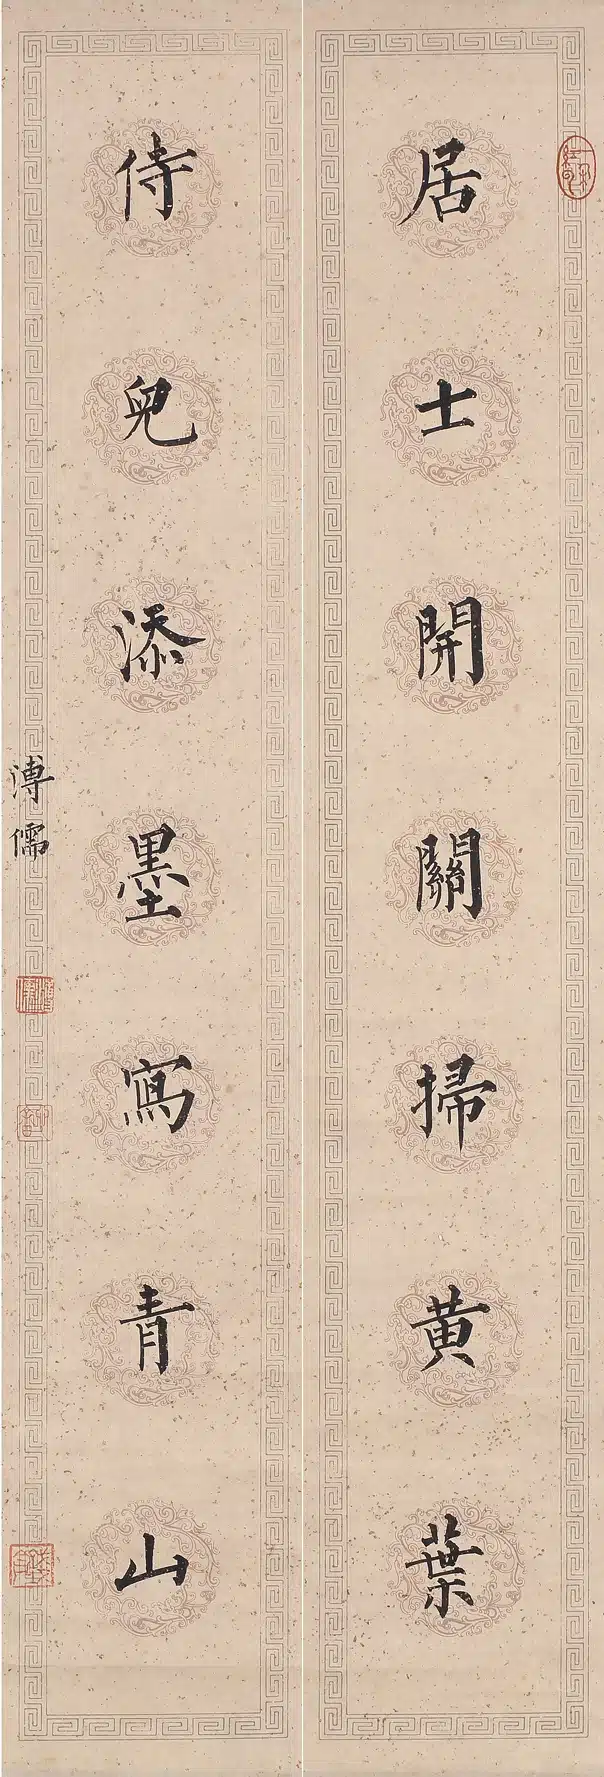 居士開關掃黄葉
侍兒添墨寫青山
溥儒